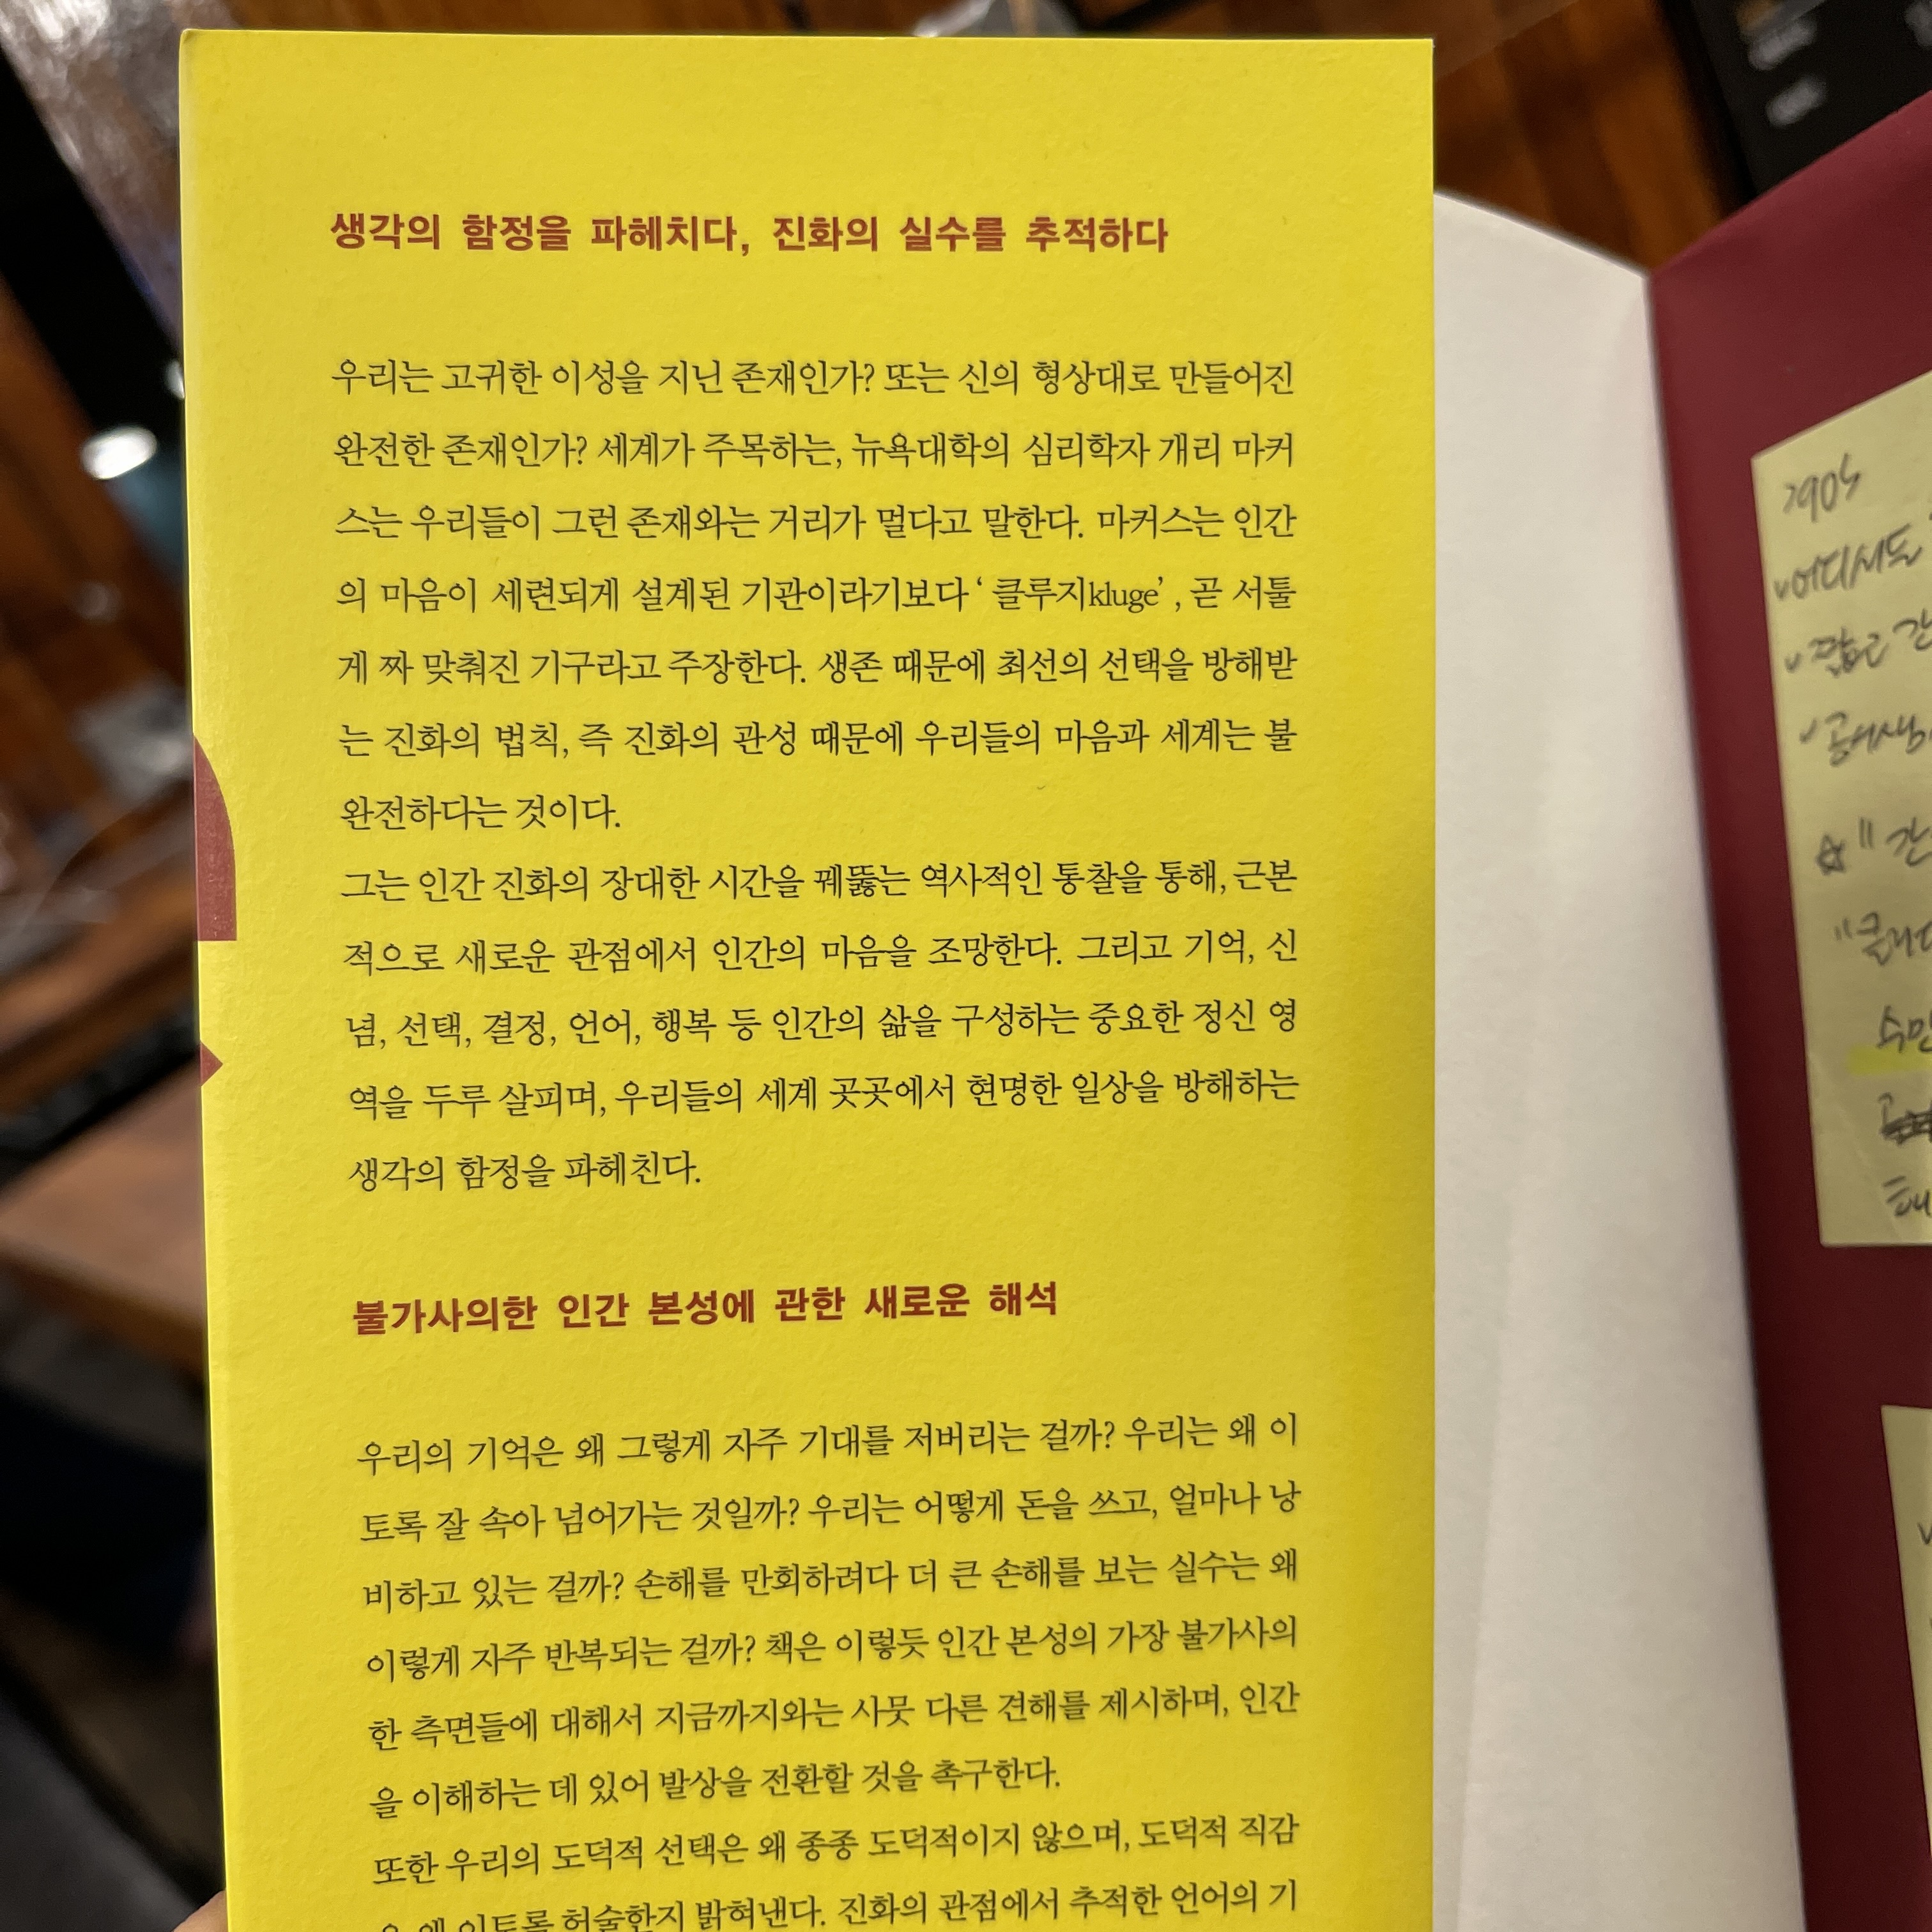 생각의 함정을 파헤치다, 진화의 실수를 추적하다
우리는 고귀한 이성을 지닌 존재인가? 또는 신의 형상대로 만들어진
완전한 존재인가? 세계가 주목하는, 뉴욕대학의 심리학자 개리 마커
스는 우리들이 그런 존재와는 거리가 멀다고 말한다. 마커스는 인간
의 마음이 세련되게 설계된 기관이라기보다 ‘클루지kluge’, 곧 서툴
게 짜 맞춰진 기구라고 주장한다. 생존 때문에 최선의 선택을 방해받
는 진화의 법칙, 즉 진화의 관성 때문에 우리들의 마음과 세계는 불
완전하다는 것이다.
그는 인간 진화의 장대한 시간을 꿰뚫는 역사적인 통찰을 통해, 근본
적으로 새로운 관점에서 인간의 마음을 조망한다. 그리고 기억, 신
념, 선택, 결정, 언어, 행복 등 인간의 삶을 구성하는 중요한 정신 영
역을 두루 살피며, 우리들의 세계 곳곳에서 현명한 일상을 방해하는
생각의 함정을 파헤친다.
불가사의한 인간 본성에 관한 새로운 해석
우리의 기억은 왜 그렇게 자주 기대를 저버리는 걸까? 우리는 왜 이
토록 잘 속아 넘어가는 것일까? 우리는 어떻게 돈을 쓰고, 얼마나 낭
비하고 있는 걸까? 손해를 만회하려다 더 큰 손해를 보는 실수는 왜
이렇게 자주 반복되는 걸까? 책은 이렇듯 인간 본성의 가장 불가사의
한 측면들에 대해서 지금까지와는 사뭇 다른 견해를 제시하며, 인간
을 이해하는 데 있어 발상을 전환할 것을 촉구한다.
또한 우리의 도덕적 선택은 왜 종종 도덕적이지 않으며, 도덕적 직감
은 왜 이토록 허술한지 밝혀낸다. 진화의 관점에서 추적한 언어의 기
어디서도